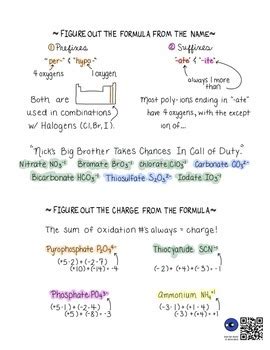 ~ FIGURE OUT THE FORMULA FROM THE NAME ~
① Prefixes
② Suffixes
"per-" & "hypo-"
"-ate" & "-ite"
4 oxygens
1 oxygen
always 1 more than
Both are
used in combinations
w/ Halogens (Cl, Br, I).
Most poly-ions ending in "-ate"
have 4 oxygens, with the except
ion of...
"Nick's Big Brother Takes Chances In Call of Duty."
Nitrate NO₃⁻¹ Bromate BrO₃⁻¹ chlorate ClO₃⁻¹ Carbonate CO₃²⁻
Bicarbonate HCO₃⁻¹ Thiosulfate S₂O₃²⁻ Iodate IO₃⁻¹
~ FIGURE OUT THE CHARGE FROM THE FORMULA ~
The sum of oxidation #s always = charge!
Pyrophosphate P₂O₇⁴⁻
(+5·2) + (-2·7)
(+10) + (-14) = -4
Thiocyanide SCN⁻¹
(-2) + (+4) + (-3) = -1
Phosphate PO₄³⁻
(+5·1) + (-2·4)
(+5) + (-8) = -3
Ammonium NH₄⁺¹
(-3·1) + (+1·4)
(-3) + (+4) = +1